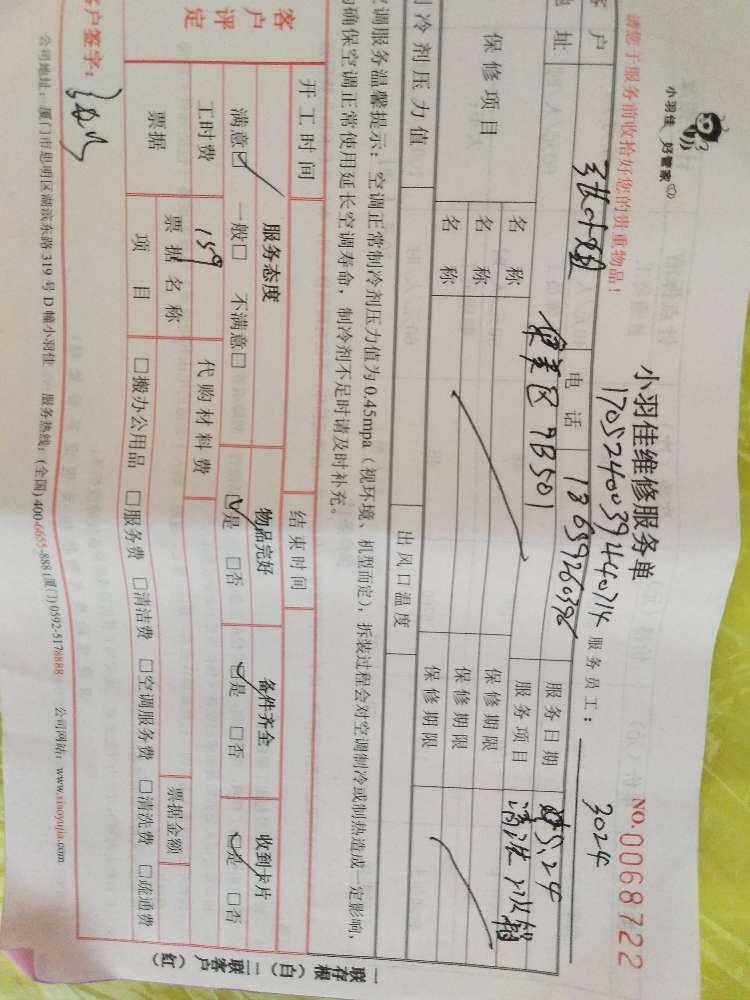 小羽佳 好管家
小羽佳维修服务单
NO.0068722
请您于服务前收拾好您的贵重物品!
17052400394440714
服务员工:
3024
客户
电话
13659260396
服务日期
5.24
地址
7B501
服务项目
清洗
保修项目
名称
保修期限
名称
保修期限
名称
保修期限
制冷剂压力值
出风口温度
空调服务温馨提示:空调正常制冷剂压力值为0.45mpa(视环境、机型而定),拆装过程会对空调制冷或制热造成一定影响,
为确保空调正常使用延长空调寿命,制冷剂不足时请及时补充。
开工时间
结束时间
客户评定
服务态度
物品完好
备件齐全
收到卡片
满意☑ 一般□ 不满意□
☑是 □否
☑是 □否
☑是 □否
工时费
159
代购材料费
票据
票据名称
票据金额
项目
□搬办公用品 □服务费 □清洁费 □空调服务费 □清洗费 □疏通费
客户签字:
公司地址:厦门市思明区湖滨东路319号D幢小羽佳 服务热线:(全国)400-6655-888 (厦门)0592-5178888 公司网站:www.xiaoyujia.com
一联存根(白)二联客户(红)